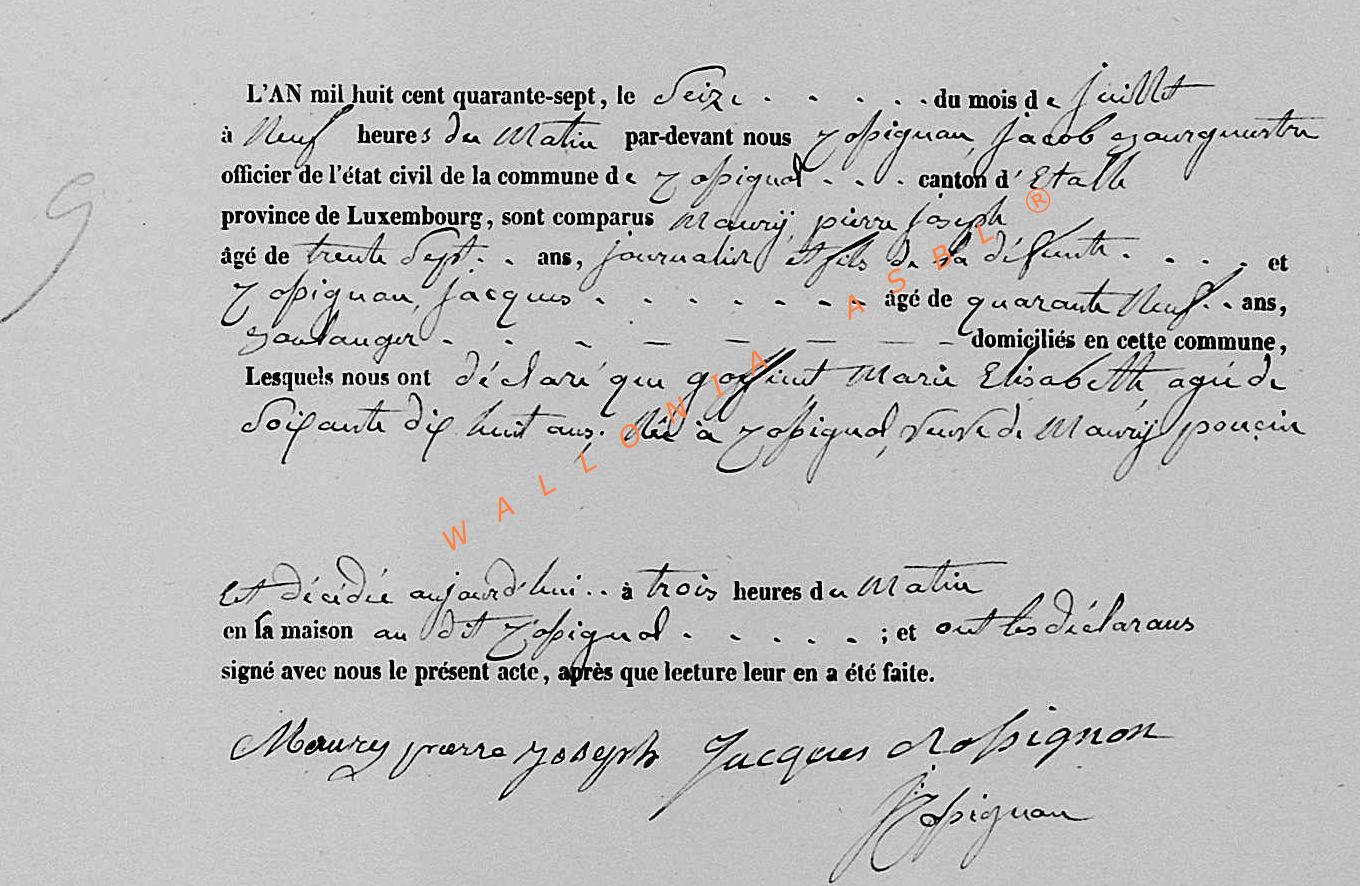 L'AN mil huit cent quarante-sept, le Seize . . . . . du mois de Juillet
à Neuf heures du Matin par-devant nous Rossignon, Jacob Bourgmestre
officier de l'état civil de la commune de Rossignol . . . canton d'Etalle
province de Luxembourg, sont comparus Maury, pierre joseph
âgé de trente Sept . . ans, journalier et fils de la défunte . . . . et
Rossignon, jacques . . . . . . . âgé de quarante Neuf . . ans,
Boulanger . . . — — — — — — domiciliés en cette commune,
Lesquels nous ont déclaré que goffinet Marie Elisabeth, agée de
Soixante dix huit ans, Née à Rossignol, veuve de Maury ponçin
Est décédée aujourd'hui . . à trois heures du Matin
en sa maison au dit Rossignol . . . . . ; et ont les déclarans
signé avec nous le présent acte, après que lecture leur en a été faite.
Maury pierre joseph Jacques Rossignon
JRossignon
9
WALLONIA ASBL ®